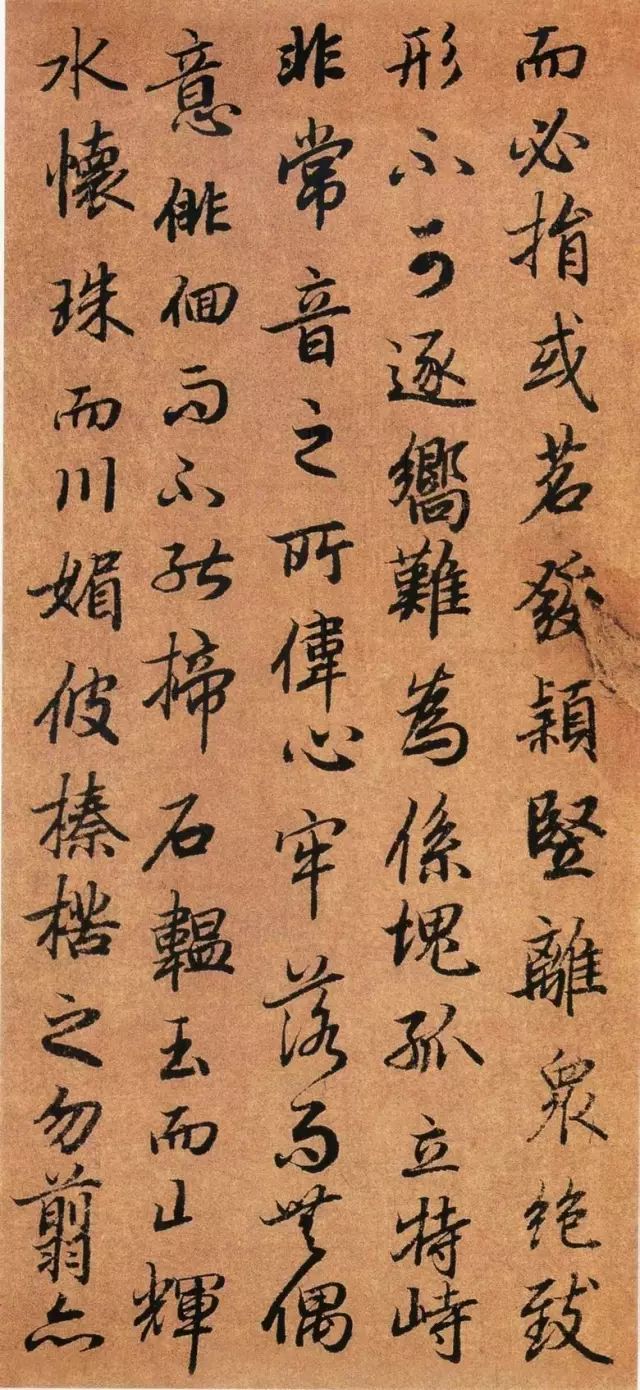 而必捐或苕發穎豎離衆絶致
形不可逐嚮難為係塊孤立特峙
非常音之所偉心牢落而無偶
意俳佪而不能揥石韞玉而山輝
水懷珠而川媚彼榛楛之勿翦亦